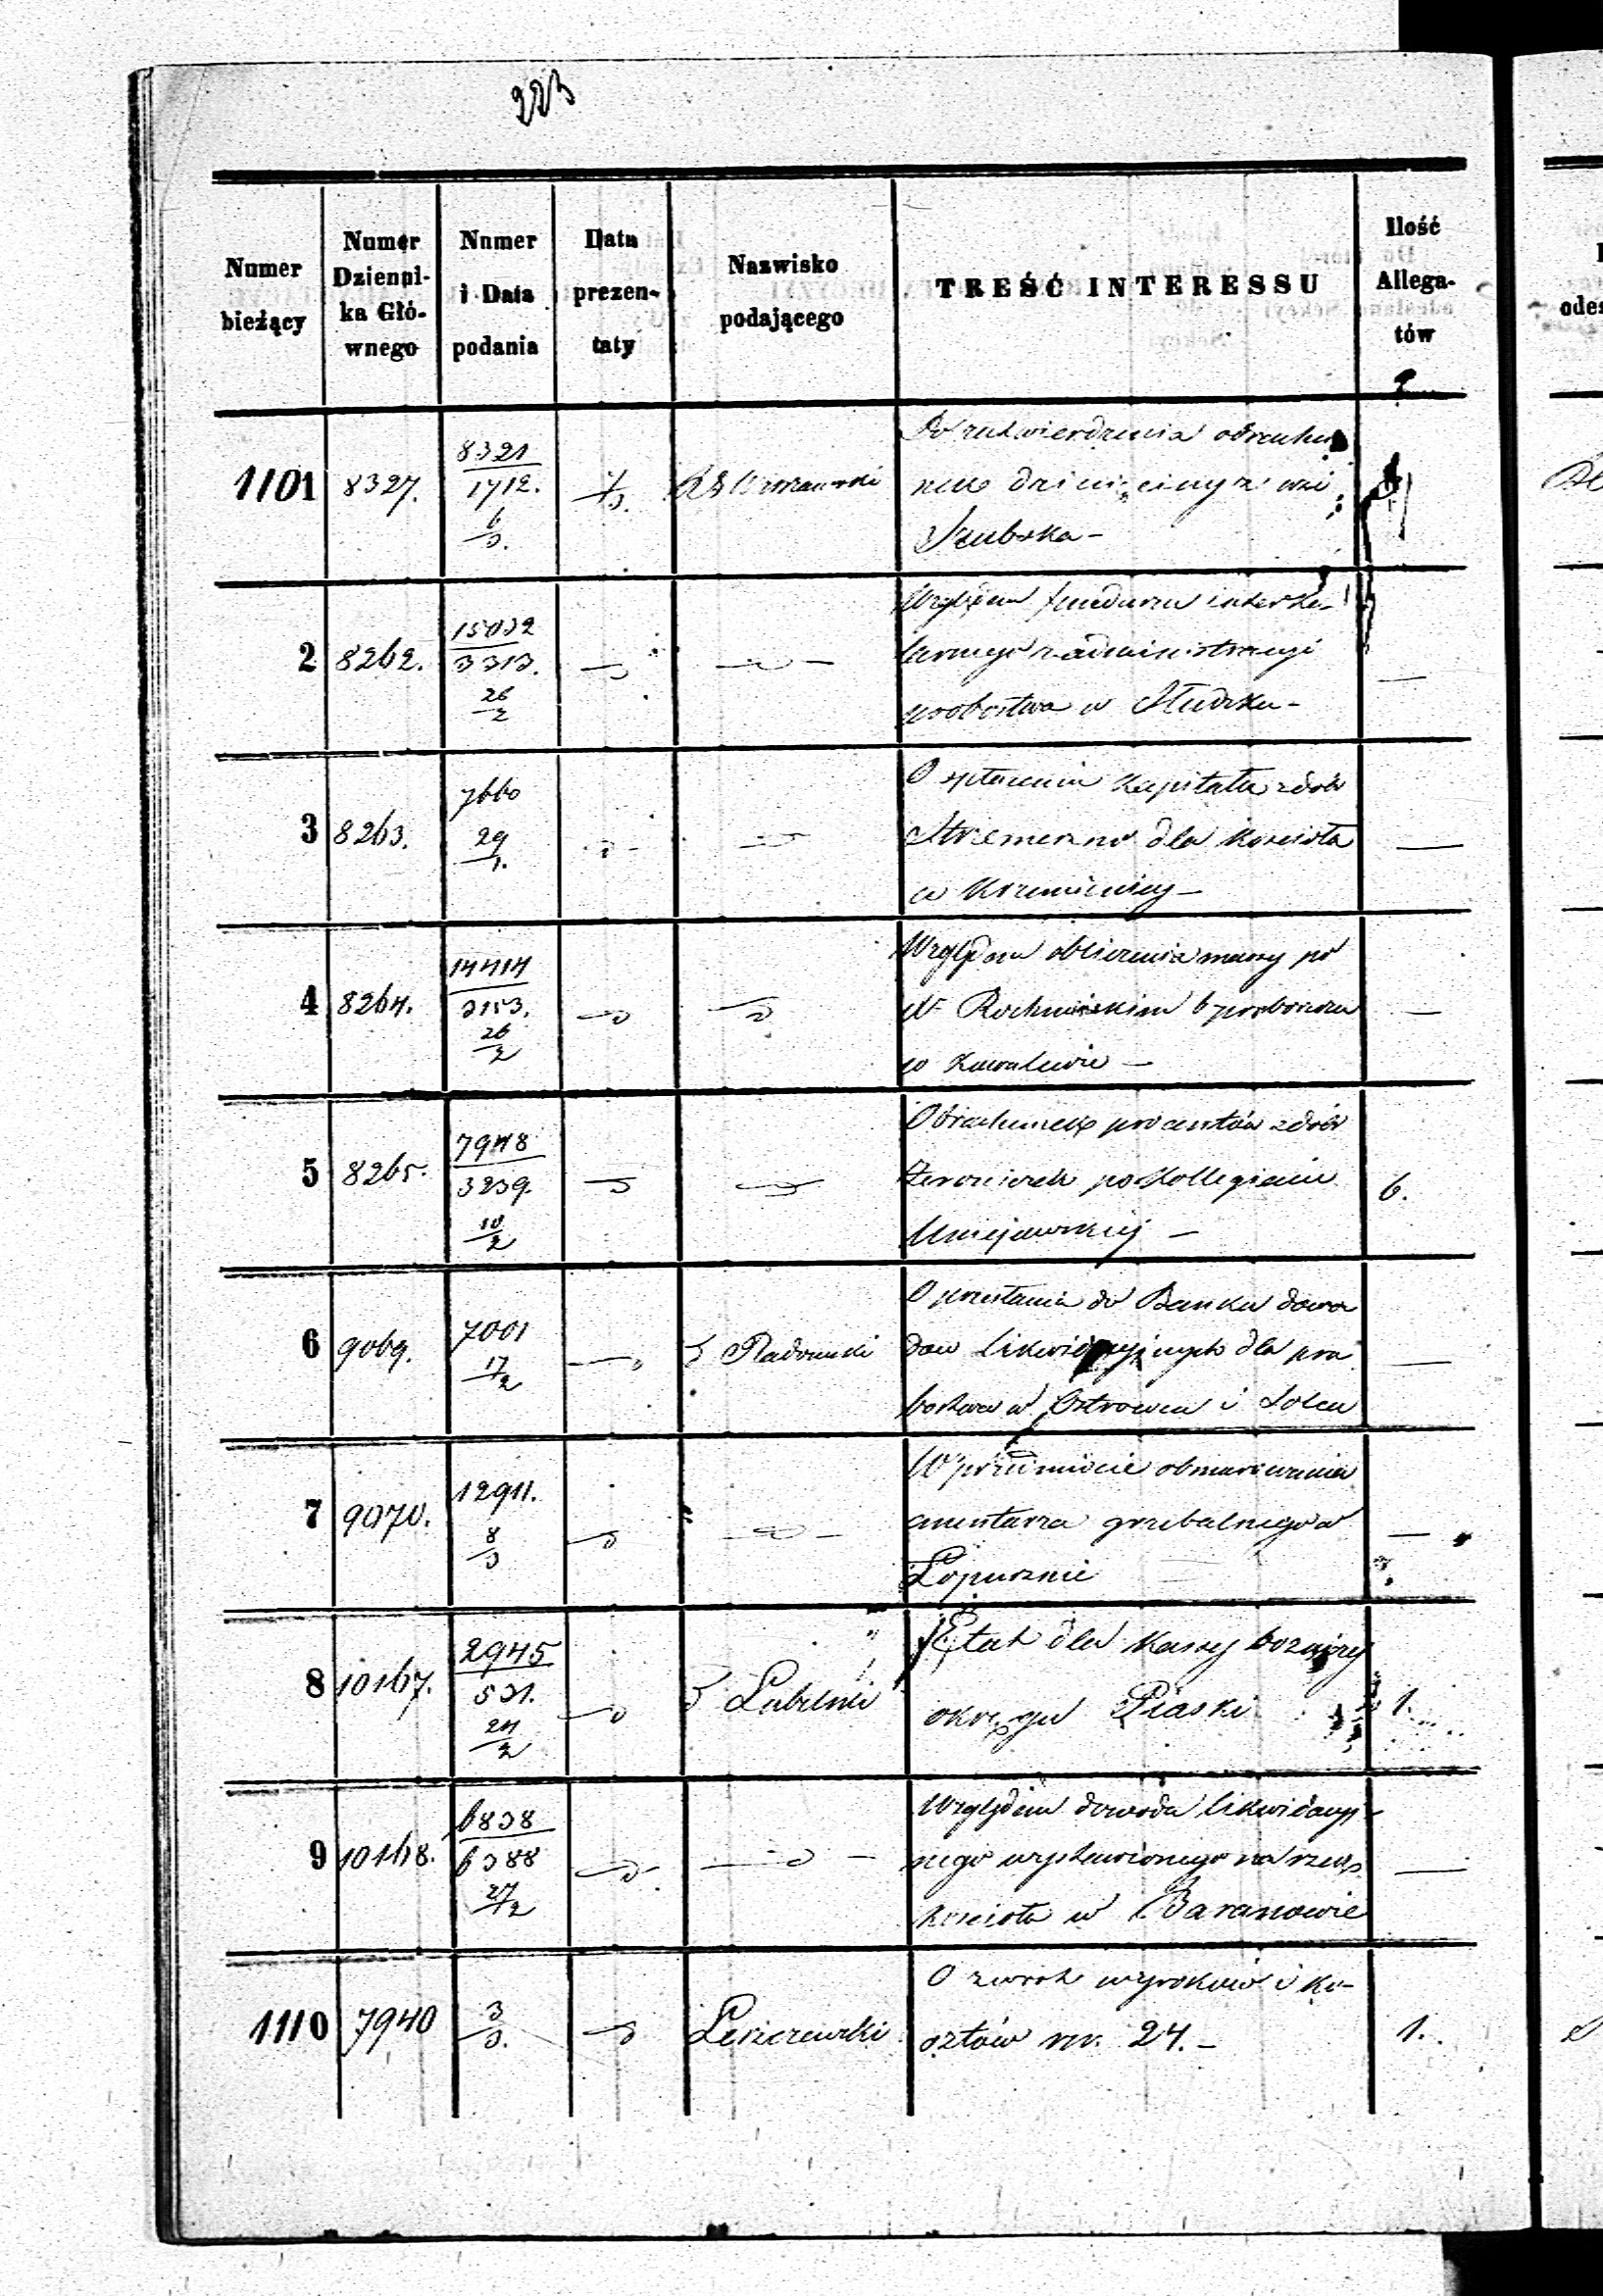 223
Numer bieżący
Numer Dzienni- ka Głó- wnego
Numer i Data podania
Data prezen- taty
Nazwisko podającego
TREŚĆ INTERESSU
Ilość Allega- tów
1101 8327. 8321 1712. 6/3.
dziesięciny z wsi
2 8262. 15032 3313. 26/2
Względem funduszu interka-
larnego z administracyi
probostwa w
3 8263. 7660 29/1.
O spłacenie kapitału z dób
dla kościoła
w
4 8264. 14414 3153. 26/2
Względem obliczenia massy po
X Rochmińskim b proboszczu
w Kawalewie —
5 8265. 7948 3239. 10/2 6.
Obrachunek procentów z dób
po Kollegiacie
Uniejowskiej —
6 9069. 7001 17/2 Radomski
O przesłanie do Banku dowo
dów likwidacyjnych dla pro
bostwa w Ostrowcu i Solcu
7 9070. 12911. 8/3
W przedmiocie obmurowania
cmentarza grzebalnego w
Łopusznie
8 10167. 2945 531. 24/2 Lubelski 1.
Etat dla Kassy bożniczej
okręgu Piaski
9 10168. 6838 6388 27/2
Względem dowodu likwidacyj-
nego wystawionego na rzecz
kościoła w Baranowie
1110 7940 3/3. Leszczewski 1.
O zwrot wyroków i ko-
sztów nr. 24. –